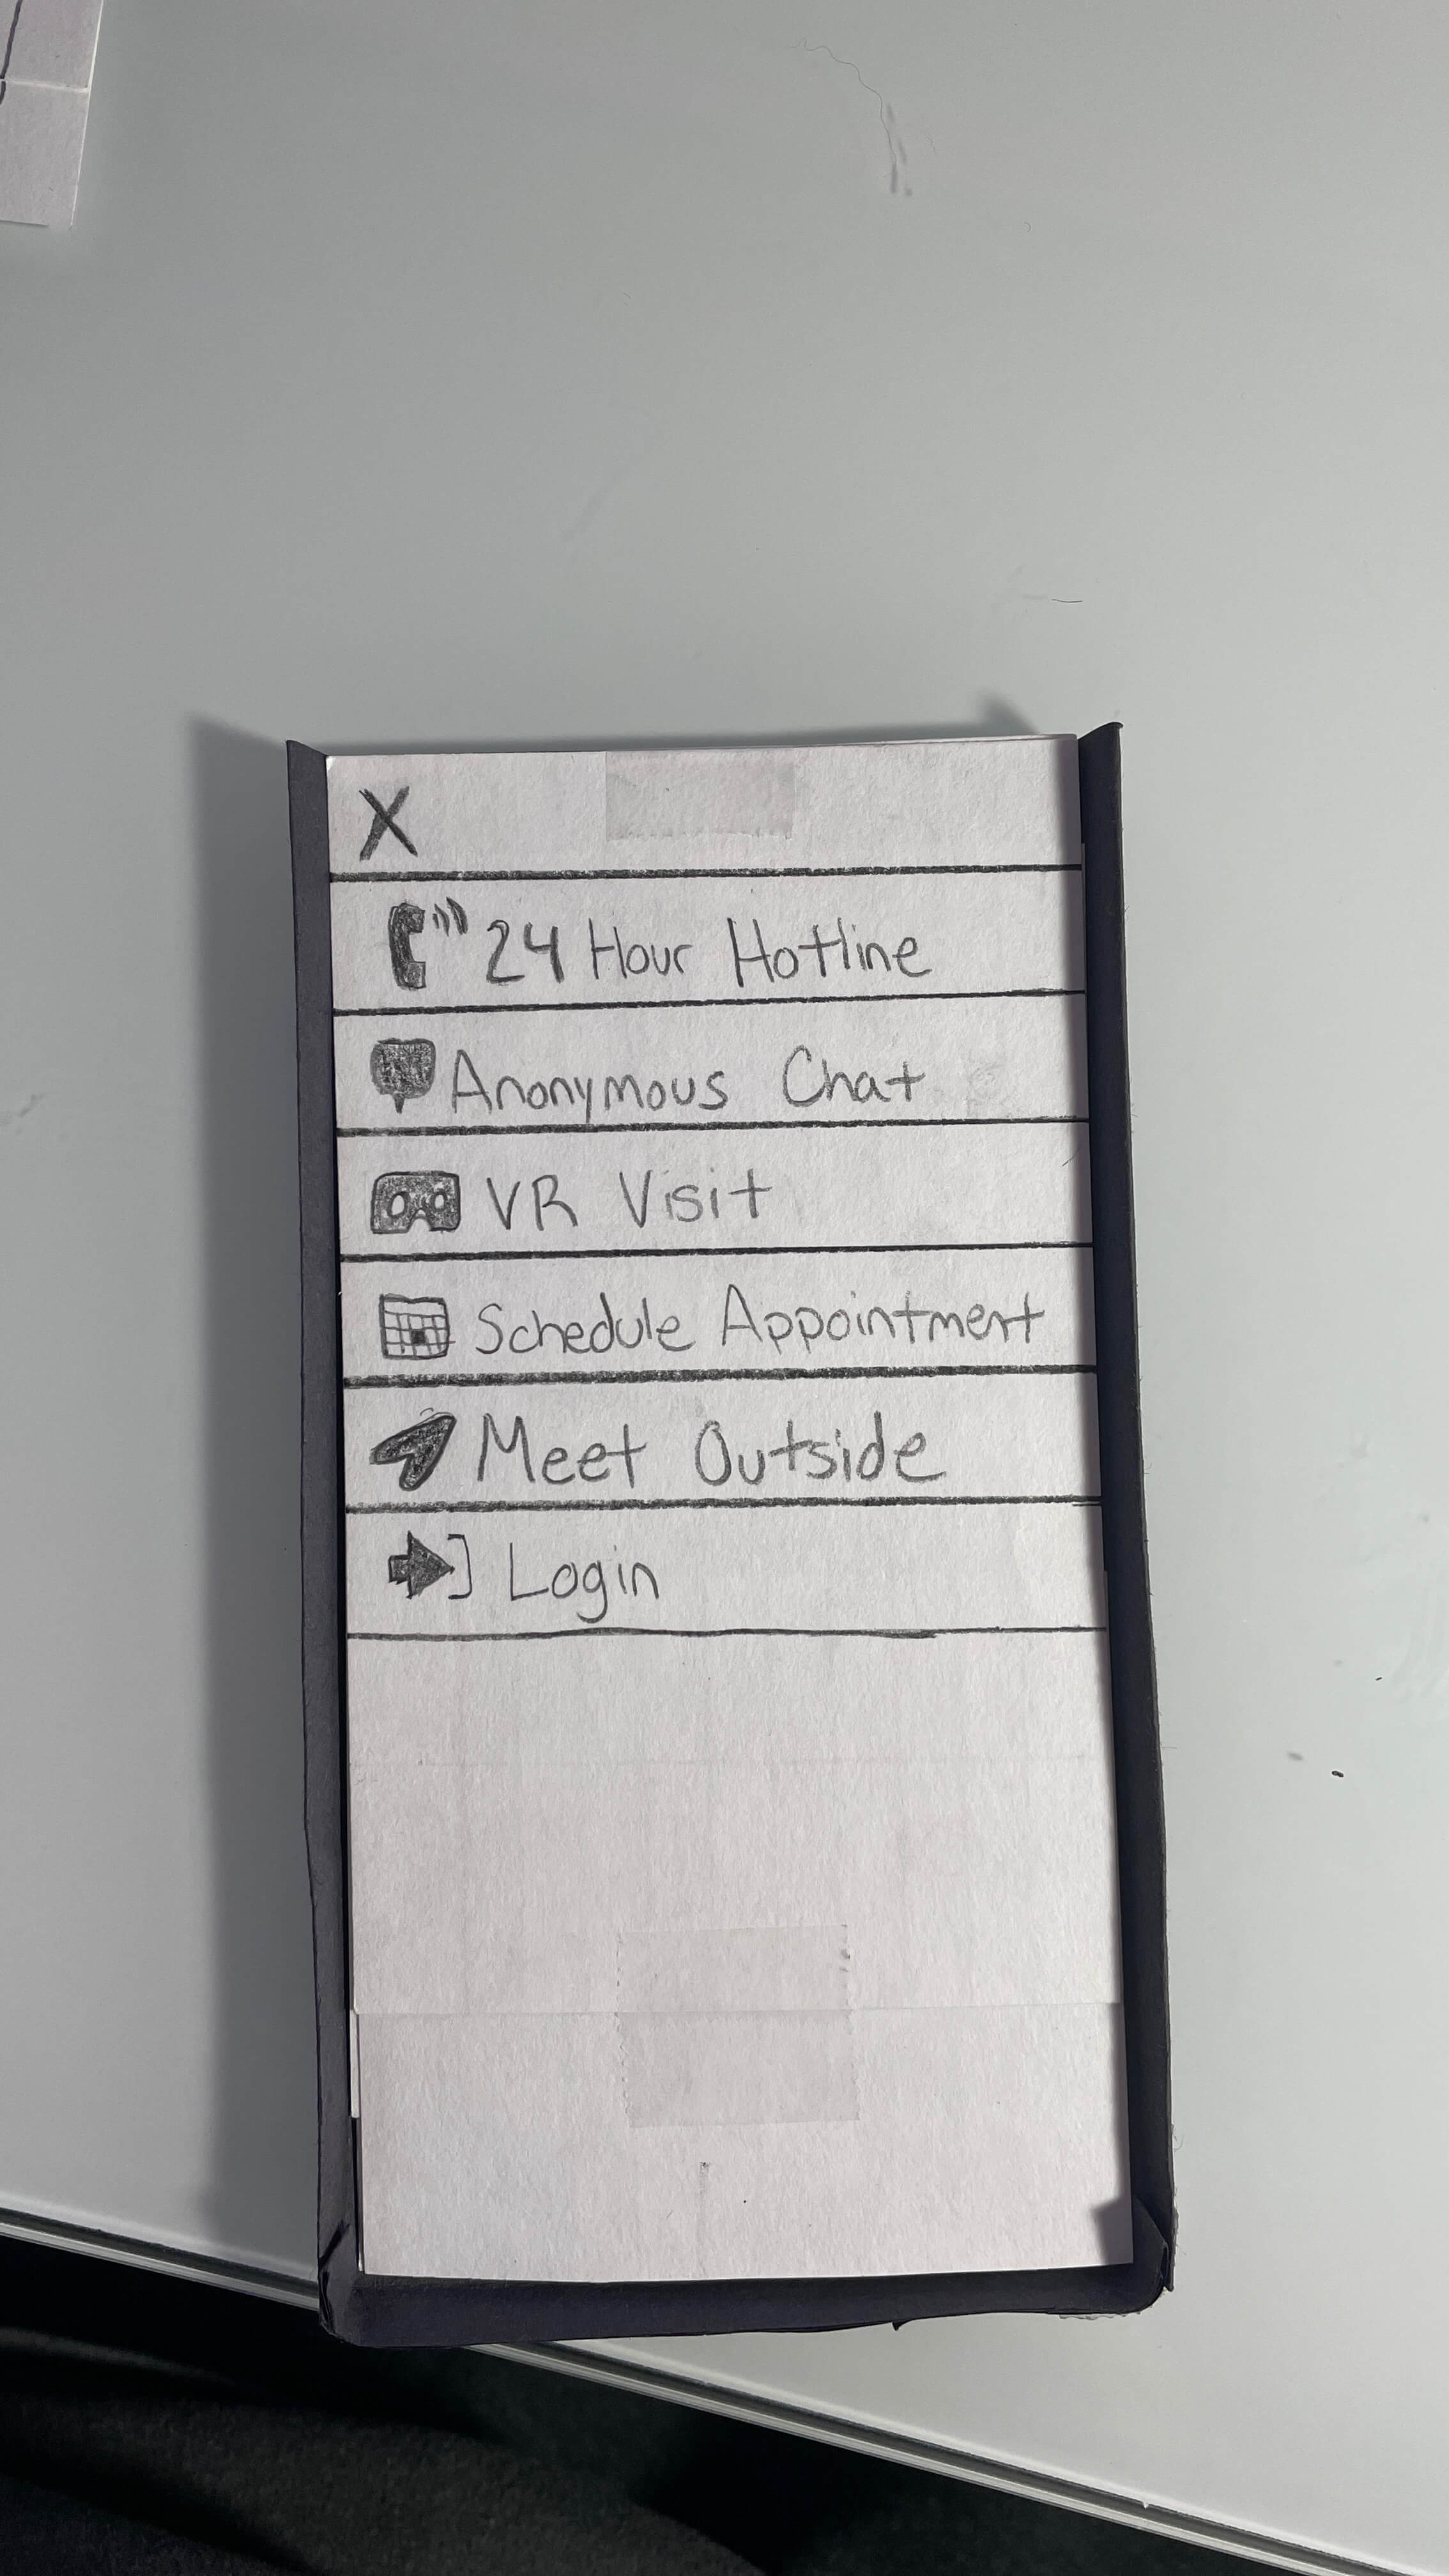 X
24 Hour Hotline
Anonymous Chat
VR Visit
Schedule Appointment
Meet Outside
Login